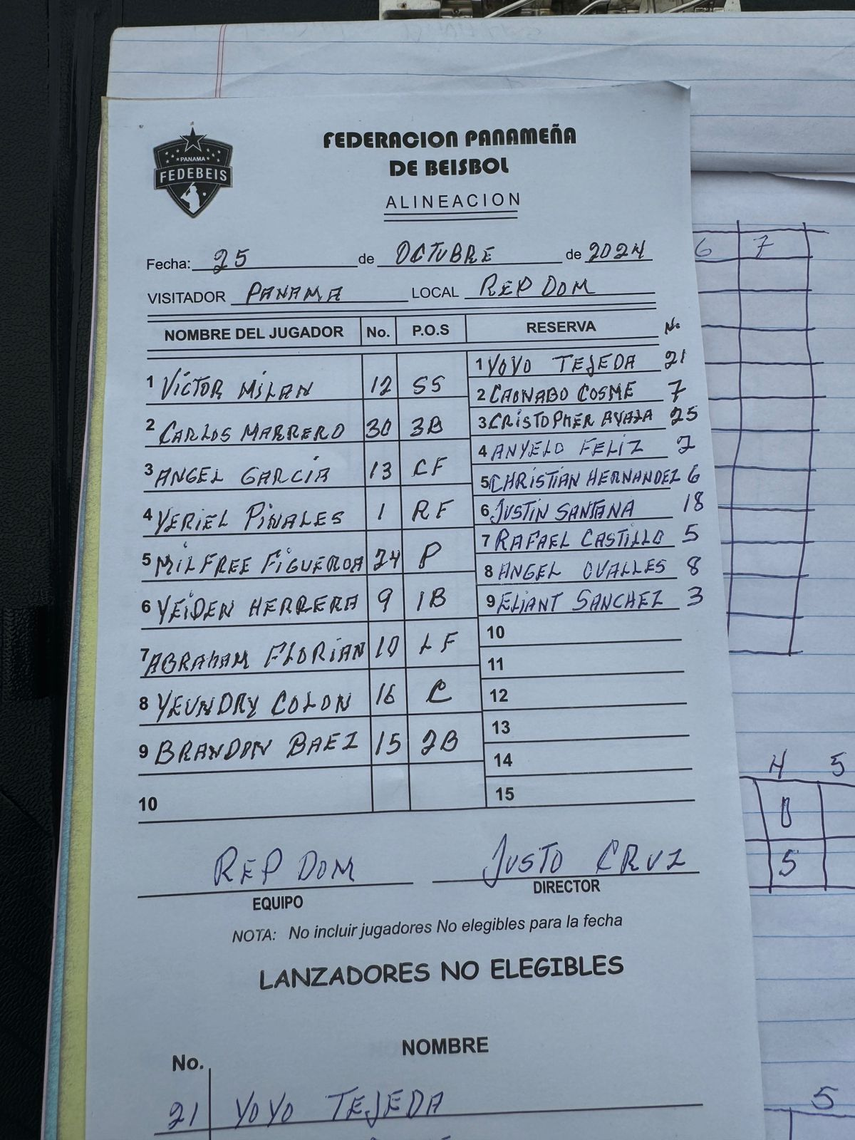 PANAMA
FEDEBEIS
FEDERACION PANAMEÑA
DE BEISBOL
ALINEACION
Fecha: 25 de OCTUBRE de 2024
VISITADOR PANAMA LOCAL REP DOM
NOMBRE DEL JUGADOR No. P.O.S RESERVA No.
1 VICTOR MILAN 12 SS
2 CARLOS MARRERO 30 3B
3 ANGEL GARCIA 13 CF
4 YERIEL PINALES 1 RF
5 MILFREE FIGUEROA 24 P
6 YEIDEN HERRERA 9 1B
7 ABRAHAM FLORIAN 10 LF
8 YEUNDRY COLON 16 C
9 BRANDON BAEZ 15 2B
10
1 YOYO TEJEDA 21
2 CAONABO COSME 7
3 CRISTOPHER AYALA 25
4 ANYELO FELIZ 2
5 CHRISTIAN HERNANDEZ 6
6 JUSTIN SANTANA 18
7 RAFAEL CASTILLO 5
8 ANGEL OVALLES 8
9 ELIANT SANCHEZ 3
10
11
12
13
14
15
REP DOM JUSTO CRUZ
EQUIPO DIRECTOR
NOTA: No incluir jugadores No elegibles para la fecha
LANZADORES NO ELEGIBLES
No. NOMBRE
21 YOYO TEJEDA
6 7
4 5
0
5
5